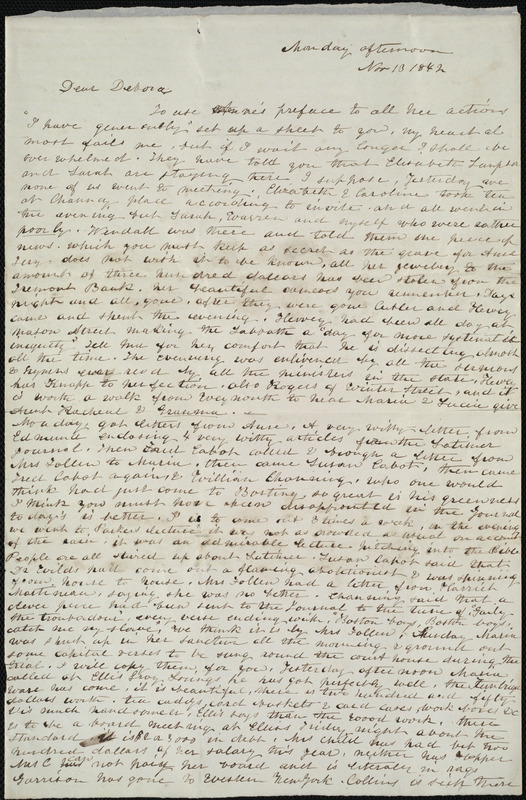 Monday afternoon
Nov 13 1842
Dear Debora
To use Anne's preface to all her actions
"I have generously" set up a sheet to you, my heart al
most fails me, but if I wait any longer I shall be
overwhelmed. They have told you that Elizabeth
and Sarah are staying here I suppose, Yesterday we
none of us went to meeting. Elizabeth & Caroline took tea
at Chauncy place according to invite. and all went in
the evening but Sarah, Warren and myself who were rather
poorly. Wendall was there and told them one piece of
news. which you must keep as secret as the grave for Aunt
does not wish it to be known, all her jewelry to the
amount of three hundred dollars has been stolen from the
Tremont Bank. her beautiful cameos you remember. Tags
and all, gone. after they were gone and Hervey
came and spent the evening. Hervey had been all day at
mason Street making the Sabbath a "day for more systematick
iniquity" Tell for her comfort that he is dissecting almost
all the time. The evening was enlivened by all the sermons
& hymns ever read by all the ministers in the state, Hervey
has Knapp to perfection. also Rogers of Winter Street, and it
is worth a walk from Weymouth to hear Maria & Lucia give
Aunt Rachael & Granma.
Monday got letters from Anne, A very witty letter from
Edmund enclosing 4 very witty articles for the Latimer
Journal. Then Fred Cabot called & brough a letter from
Mrs Follen to Maria, then came Susan Cabot, then came
Fred Cabot again, & William Channing, who one would
think had just come to Bosting so great is his greenness
I think you must have been disappointed in the Journal
to day's is better. is to come out 3 times a week, in the evening
we went to Parker's lecture it was not as crowded as usual on account
of the rain. it was an admirable lecture pitching into the Bible
People are all stirred up about Latimer. Susan Cabot said that
had come out a flaming abolitionist & was spinning
from house to house. Mrs Follen had a letter from Harriet
Martineau, saying she was no better. Channing said that a
clever piece had been sent to the Journal to the tune of Gaily
the troubadour, every verse ending with, "Boston boys, Boston boys,
catch me my slave," we think it is by Mrs Follen. Sunday Maria
was shut up in the all the morning & ground out
some capital verses to be sung round the court house during the
trial, I will copy them for you, Yesterday afternoon Maria
called at Ellis Gray Lorings he has got perfectly well, the
ware has come, it is beautiful, there is two hundred & fifty
dollars worth. tea caddys, card baskets & card cases, work boxes &c
&c much handsomer, Ellis says than the wood work. there
is to be a board meeting at Ellis's Friday night about the
Standard it is \$1200 in debt. Mrs Child has had but two
hundred dollars of her salary this year, neither has Hopper
Mrs C can not pay her board and is literally in rags
Garrison has gone to Western New York. Collins is sick there